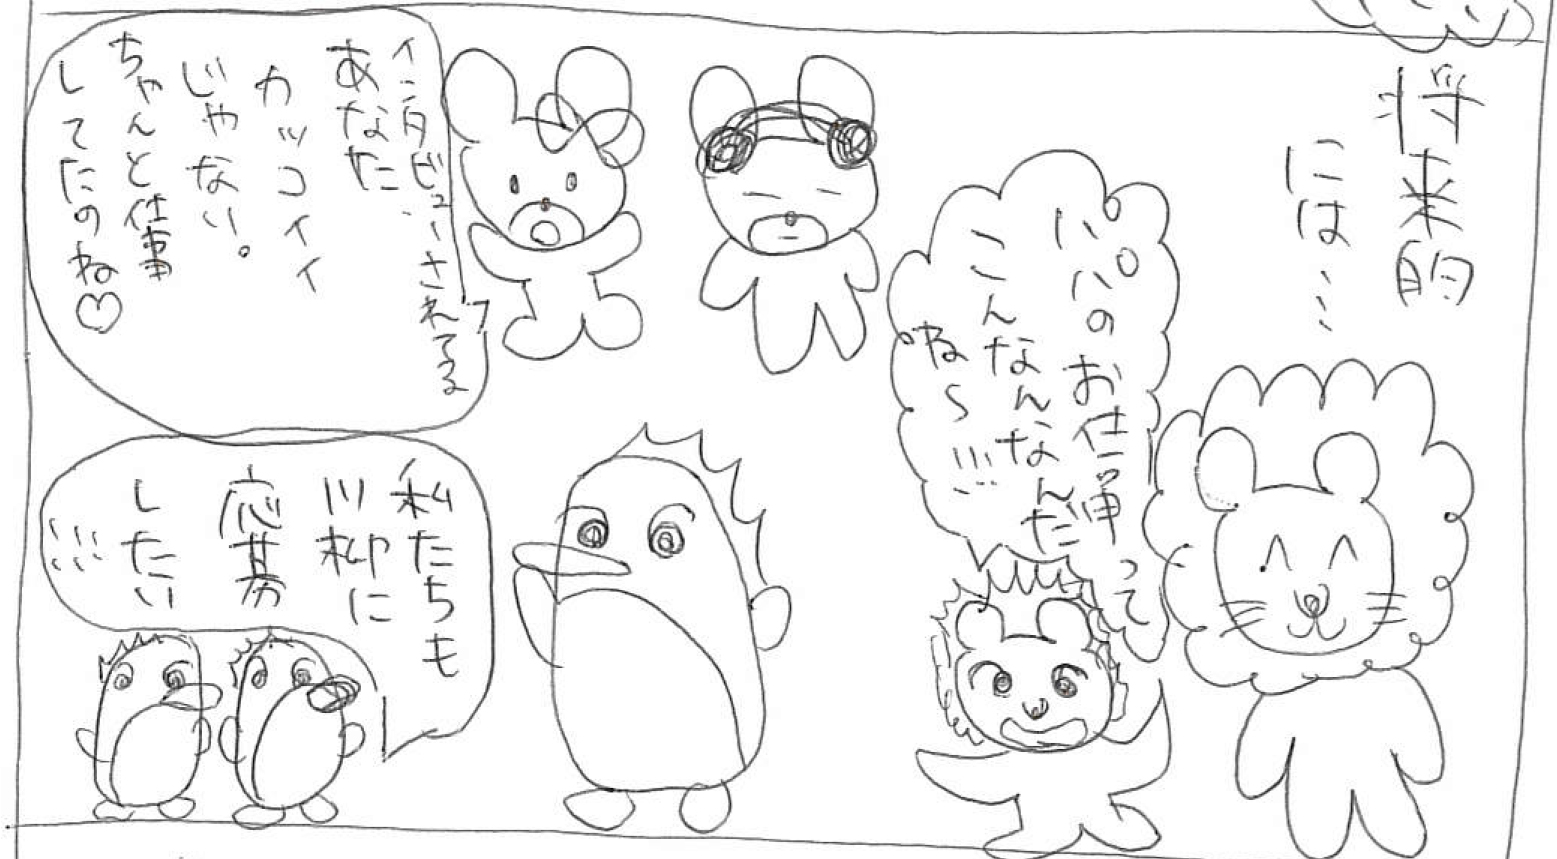 将来的
には…
パパのお仕事って
こんなんなんだ
ね〜!!!
インタビューされてる
あなた、
カッコイイ
じゃない。
ちゃんと仕事
してたのね♡
私たちも
川柳に
応募
したい
!!!